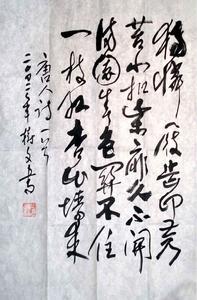 怜屐齿印苍
苔小扣柴扉久不開
满園春色関不住
一枝红杏出墙来
唐人诗一首
二〇〇二年 文书